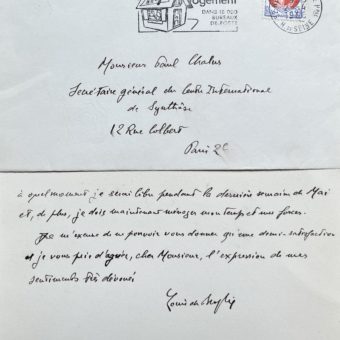 logement
DANS LE 700
BUREAUX
DE POSTE
Monsieur Paul Chalus
Secrétaire général du Centre International
de Synthèse
12 Rue Colbert
Paris 2e
à quel moment je serai libre pendant la dernière semaine de Mai
et, de plus, je dois maintenant ménager mon temps et mes forces.
Je m'excuse de ne pouvoir vous donner qu'une demi-satisfaction
et je vous prie d'agréer, cher Monsieur, l'expression de mes
sentiments très dévoués
Louis de Broglie